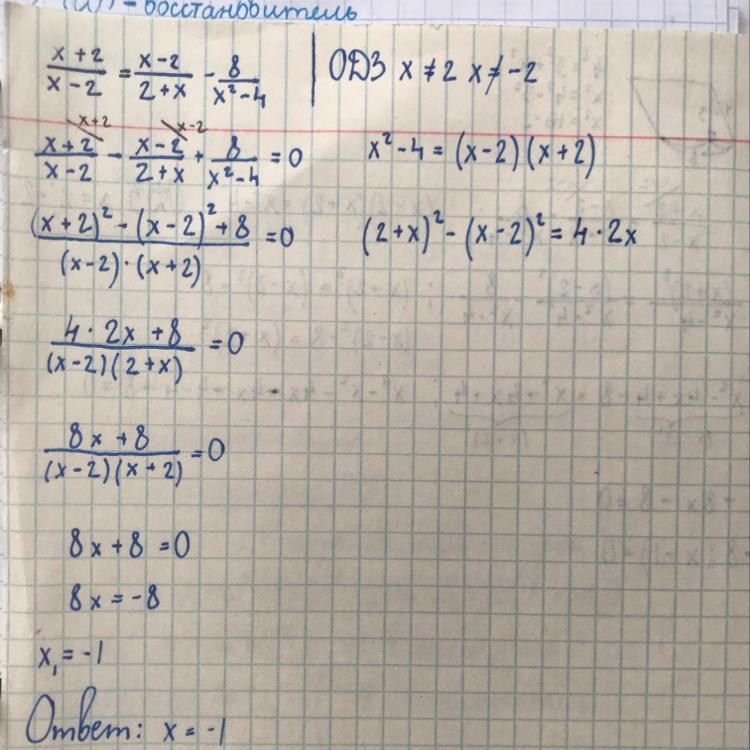 (U) - восстановитель
x+2/x-2 = x-2/2+x - 8/x²-4 | ОДЗ x≠2 x≠-2
x+2/x-2 \x+2 - x-2/2+x \x-2 + 8/x²-4 = 0
x²-4 = (x-2)(x+2)
(x+2)² - (x-2)² + 8/(x-2)·(x+2) = 0
(2+x)² - (x-2)² = 4·2x
4·2x+8/(x-2)(2+x) = 0
8x+8/(x-2)(x+2) = 0
8x+8 = 0
8x = -8
x₁ = -1
Ответ: x = -1